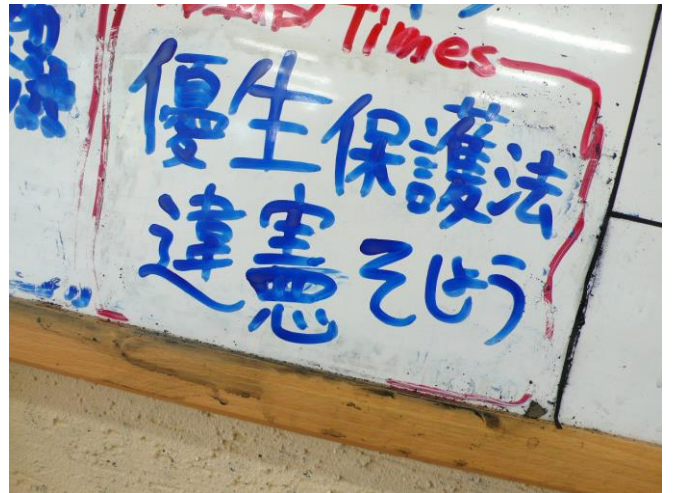 Times
優生保護法
違憲そしょう